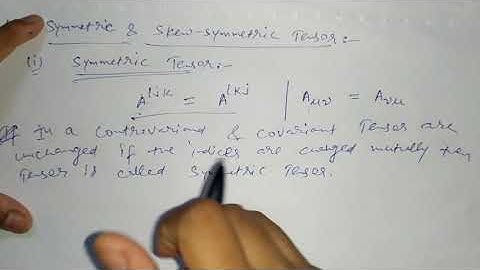 Symmetric & Skew-symmetric Tensor:-
(i) Symmetric Tensor:-
A^{ijk} = A^{ikj} | A_{μν} = A_{νμ}
If In a controvariand & covariant Tensor are
unchanged if the indices are changed mutually then
Tensor is called Symmetric Tensor.